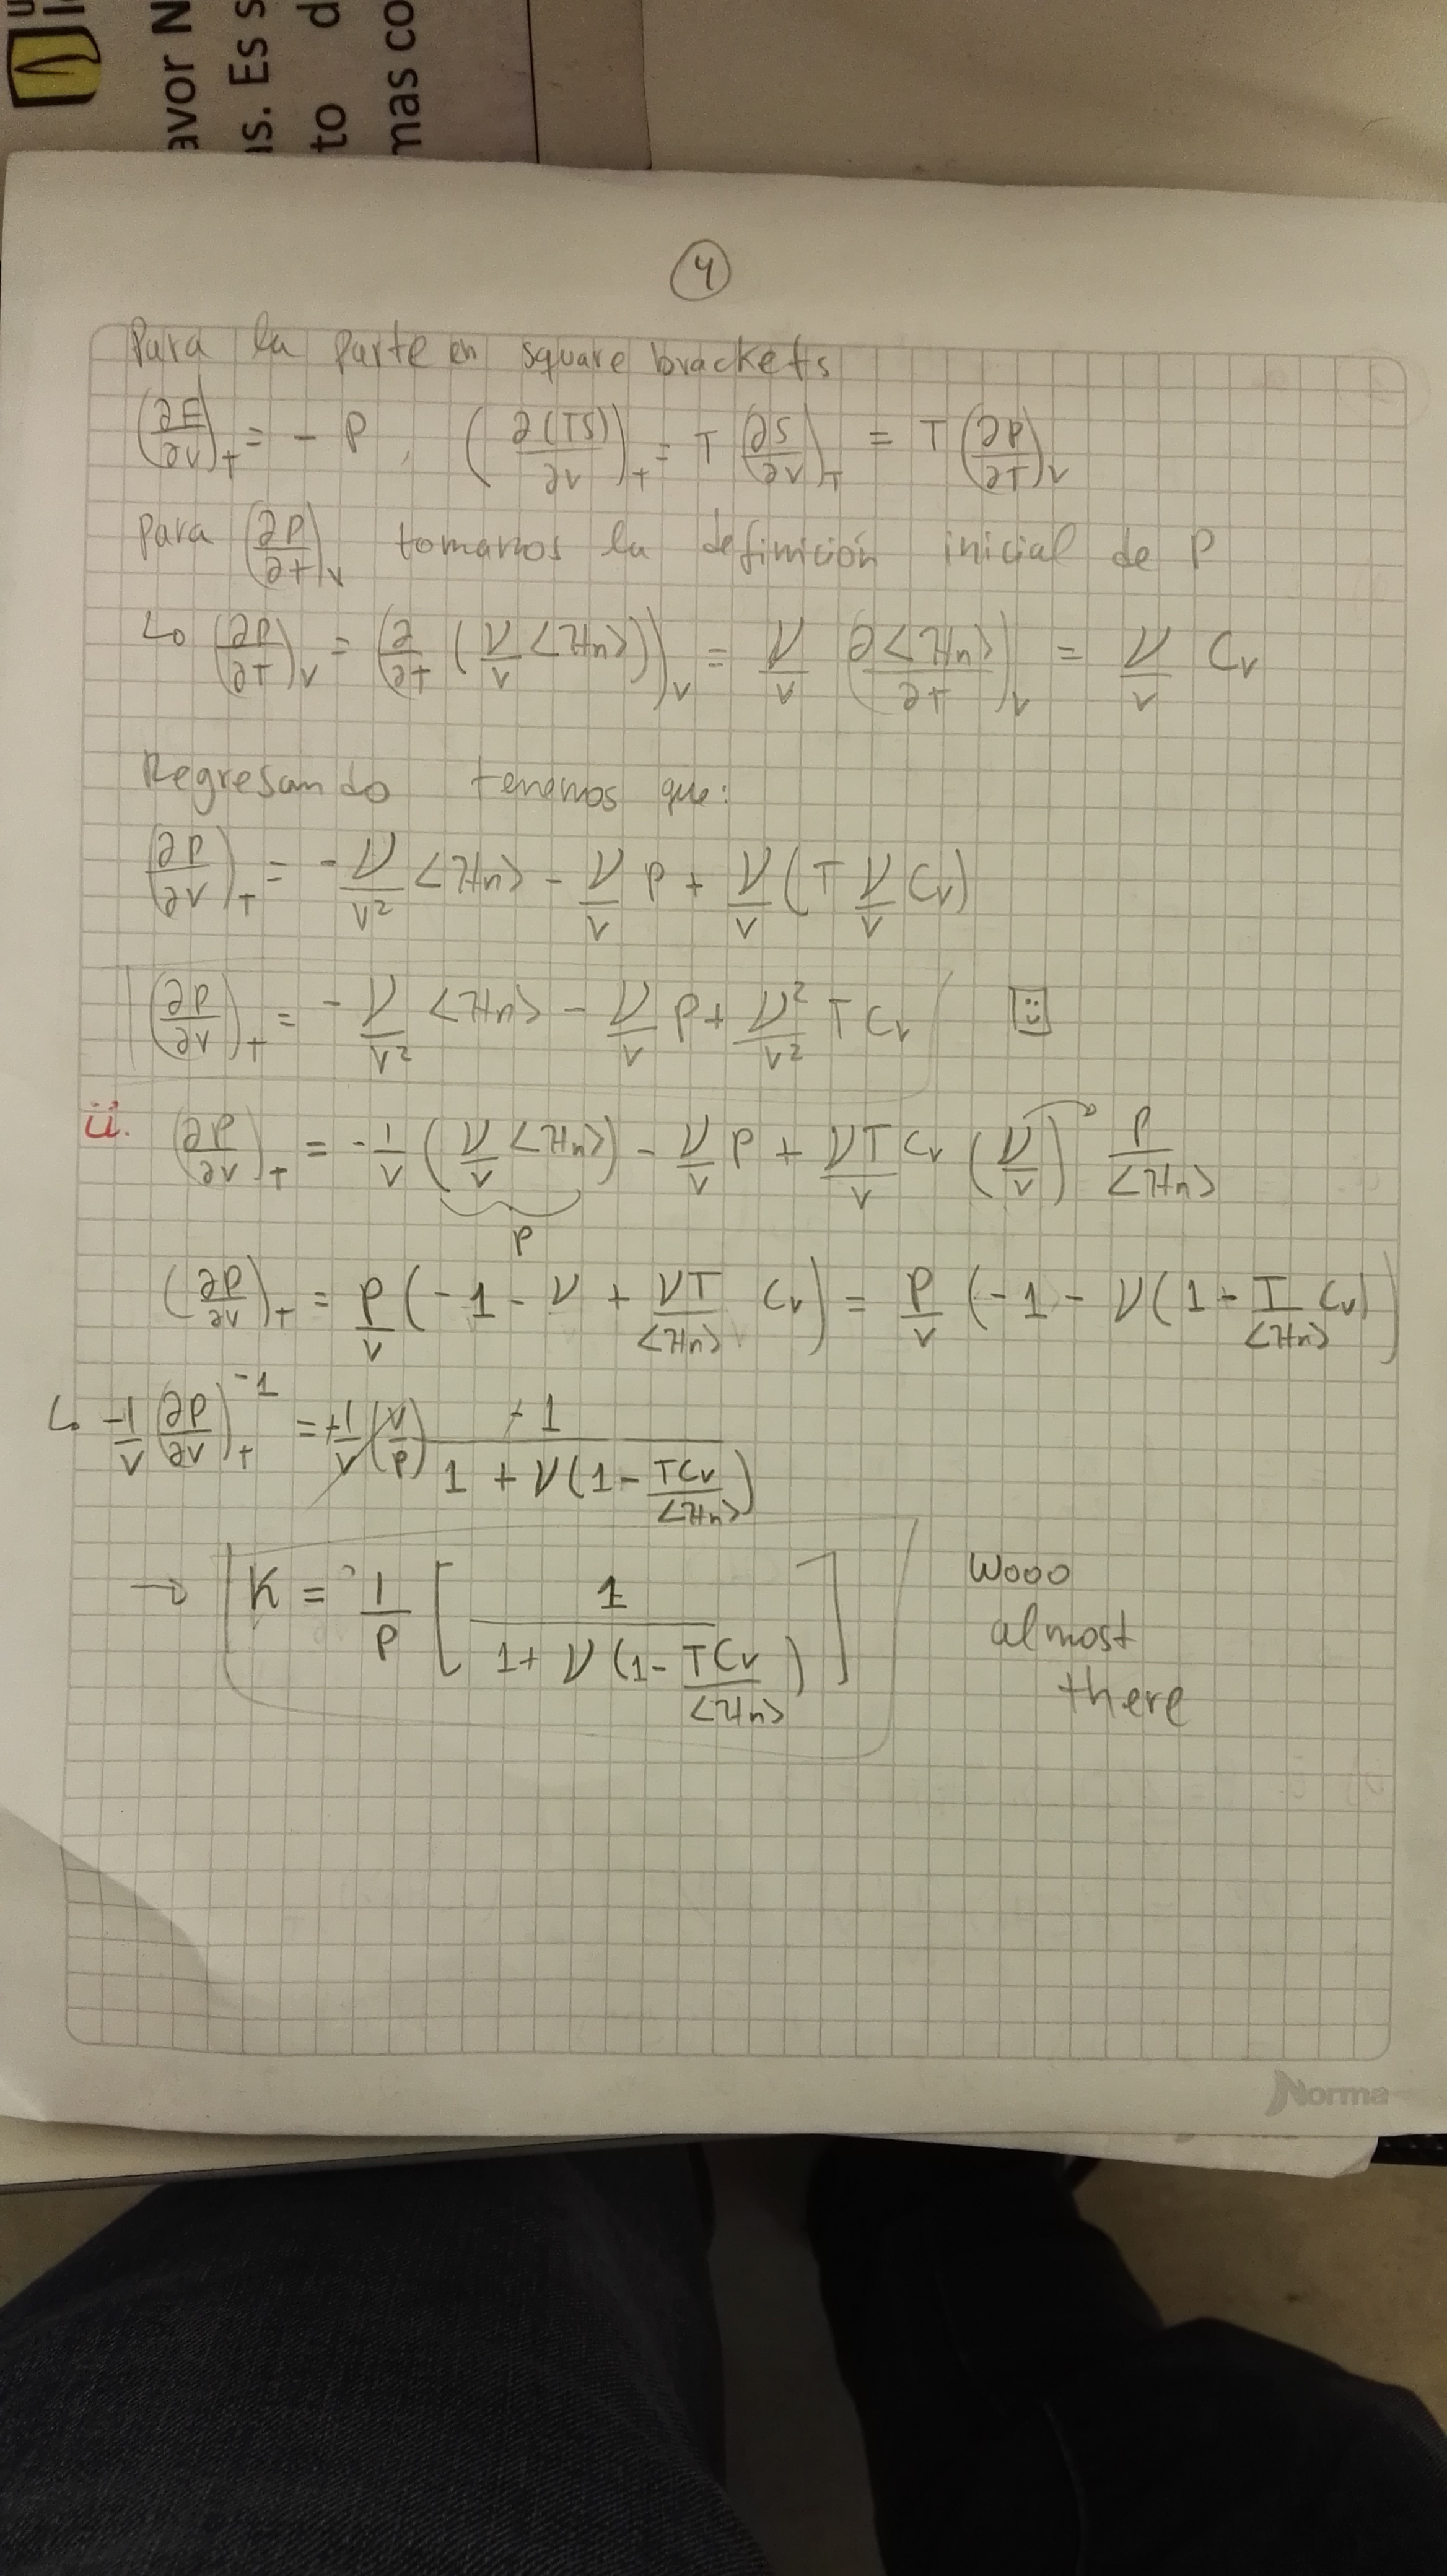 avor N
as. Es s
to d
mas co
4
Para la parte en square brackets
(∂F/∂V)_T = - P , (∂(TS)/∂V)_T = T (∂S/∂V)_T = T (∂P/∂T)_V
Para (∂P/∂T)_V tomamos la definición inicial de P
↳ (∂P/∂T)_V = (∂/∂T (ν/V <Hn>))_V = ν/V (∂<Hn>/∂T)_V = ν/V Cv
Regresando tenemos que:
(∂P/∂V)_T = - ν/V² <Hn> - ν/V P + ν/V (T ν/V Cv)
(∂P/∂V)_T = - ν/V² <Hn> - ν/V P + ν²/V² T Cv
ii. (∂P/∂V)_T = -1/V (ν/V <Hn>) - ν/V P + νT/V Cv (ν/V) P/<Hn>
P
(∂P/∂V)_T = P/V (-1 - ν + νT/<Hn> Cv) = P/V (-1 - ν(1 - T/<Hn> Cv))
↳ -1/V (∂P/∂V)_T^-1 = +1/V (V/P) +1/(1 + ν(1 - TCv/<Hn>))
→ K = 1/P [1/(1 + ν(1 - TCv/<Hn>))]
Wooo
almost
there
Norma